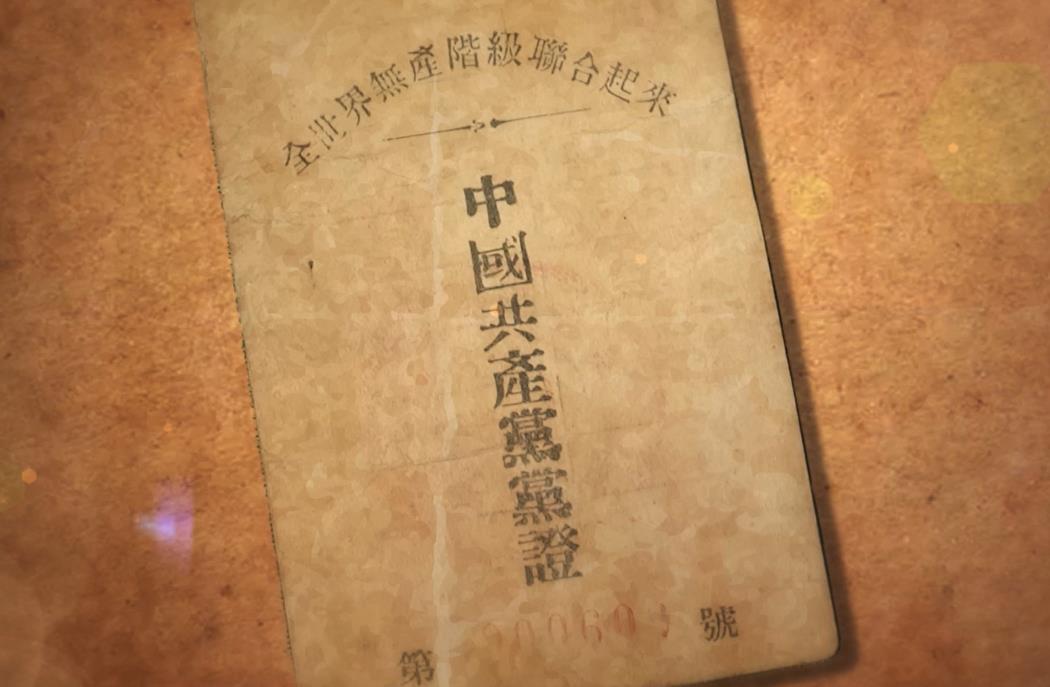 全世界無產階級聯合起來
中國共產黨黨證
第 號